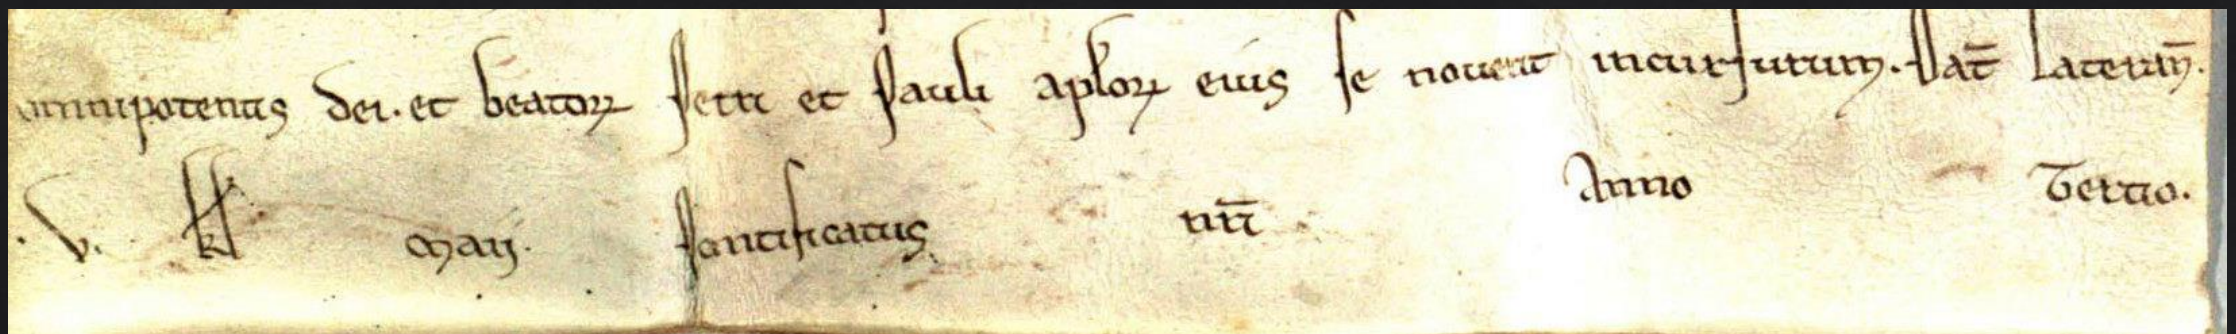 omnipotentis dei. et beatoꝝ Petri et Pauli aplorꝝ eius se noverit incursurum. Dat̄ Laterañ.
.V. kl Maii. Pontificatus nr̄i Anno Tertio.